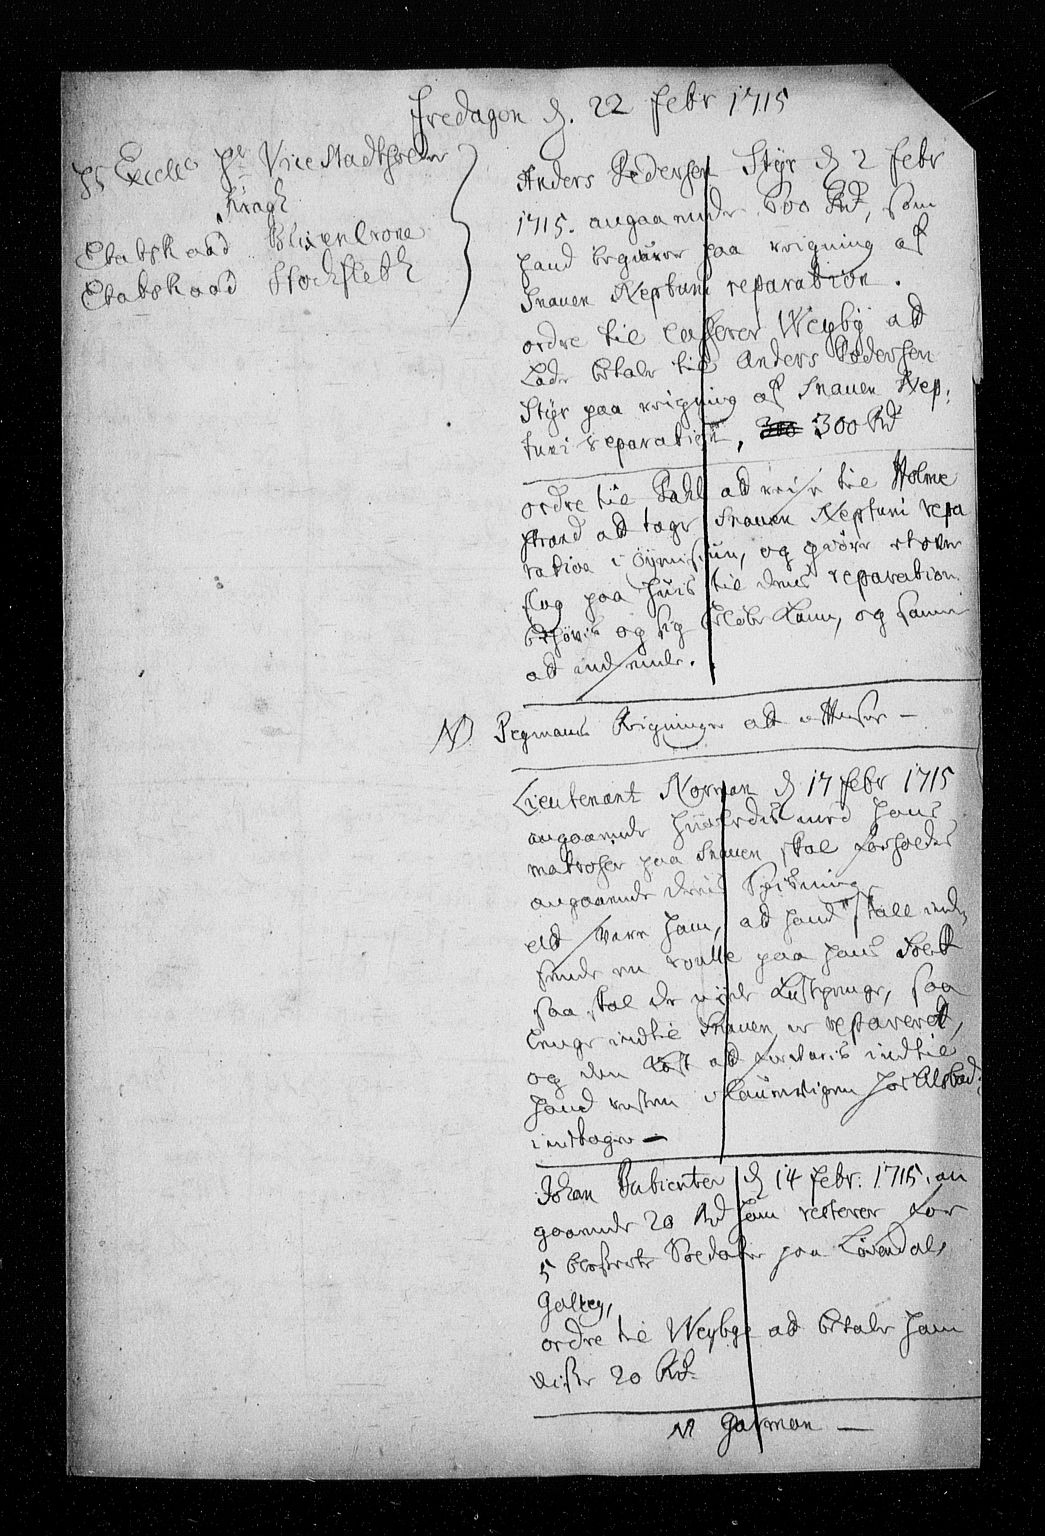 Fredagen d. 22 Febr 1715
Hs Excell. Hr Vice Stadtholder
Kragh
Etatsraad Blixencrone
Etatsraad Stockfleth
Anders Pedersen Styr d 2 Febr
1715. angaaende 600 Rd, som
hand begiærer paa reigning af
Snauen Neptuni reparation.
ordre til Casserer Weyby at
Lade betale til Anders Pedersen
Styr paa reigning af Snauen Nep-
tuni reparation, 300 Rd
ordre til Pahl at reise til Holme
strand at tage Snauen Neptuni repa
ration i Øyensiun, og giøre et over
slag paa huis til dens reparation
behøves og sig beløbe kand, og samme
at indsende.
NB Pegmans Reigninger at efftersee -
Lieutenant Norman d 17 Febr 1715
angaaende huorledis med hans
matroser paa Snauen skal forholdes
angaaende deris Spisning
at svare ham, at hand skall ind
sende en roulle paa hans folck
saa skal de nyde Kostpenge, saa
lenge indtil Snauen er repareret,
og den Kost at forklaris indtil
hand resten i Laurvigen hos
indtager -
Johan d 14 Febr. 1715. an
gaaende 20 Rd ham resterer for
5 blesserte Soldater paa Løvendals
Galley,
ordre til Weybye at betale ham
disse 20 Rd.
NB Garman -